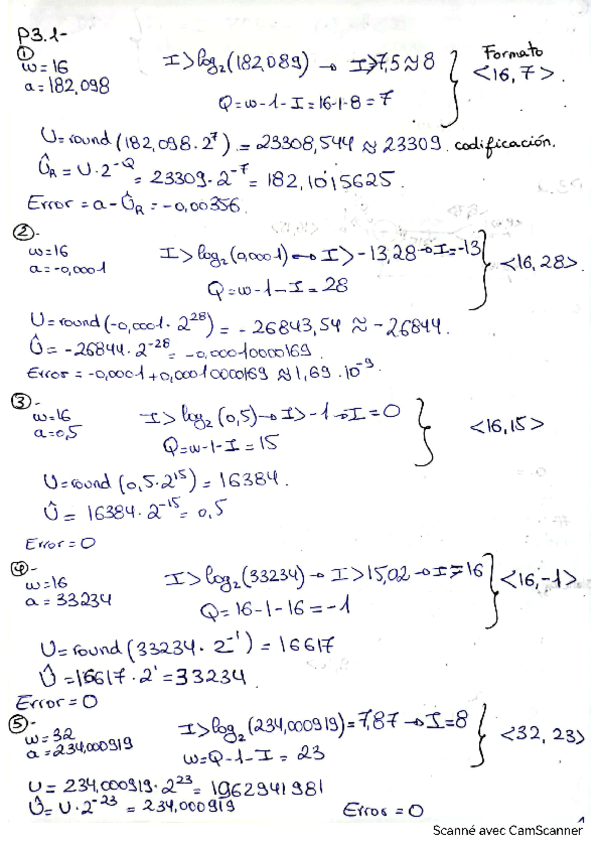 P3.1-
①
w=16
a=182,098
I>log₂(182,089) → I>7,5≈8
Q=w-1-I=16-1-8=7
Formato
<16,7>.
U=round(182,098·2⁷)=23308,544≈23309. codificación.
Û_R=U·2^-Q=23309·2⁻⁷=182,1015625.
Error=a-Û_R=-0,00356.
②-
w=16
a=-0,0001
I>log₂(0,0001)→I>-13,28→I=-13
Q=w-1-I=28
<16,28>.
U=round(-0,0001·2²⁸)=-26843,54≈-26844.
Û=-26844·2⁻²⁸=-0,00010000169.
Error=-0,0001+0,00010000169≈1,69·10⁻⁹.
③-
w=16
a=0,5
I>log₂(0,5)→I>-1→I=0
Q=w-1-I=15
<16,15>
U=round(0,5·2¹⁵)=16384.
Û=16384·2⁻¹⁵=0,5
Error=0
④-
w=16
a=33234
I>log₂(33234)→I>15,02→I=16
Q=16-1-16=-1
<16,-1>
U=round(33234·2⁻¹)=16617
Û=16617·2¹=33234.
Error=0
⑤-
w=32
a=234,000919
I>log₂(234,000919)=7,87→I=8
w=Q-1-I=23
<32,23>
U=234,000919·2²³=1962941981
Û=U·2⁻²³=234,000919
Error=0
Scanné avec CamScanner